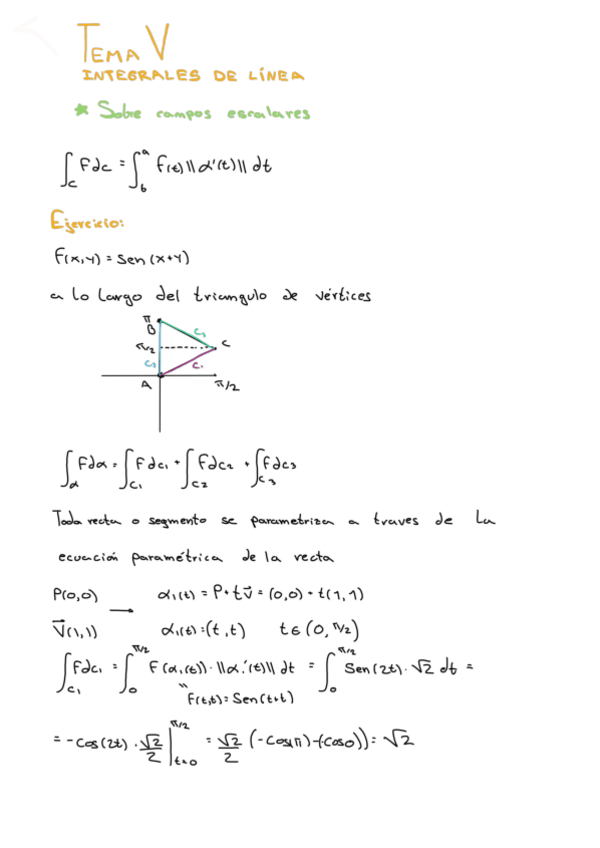 TEMA V
INTEGRALES DE LÍNEA
* Sobre campos escalares
∫_C F dc = ∫_b^a f(t) ||α'(t)|| dt
Ejercicio:
F(x,y) = Sen (x+y)
a lo largo del triangulo de vértices
π
B
C₂
π/2
C
C₃
C₁
A
π/2
∫_α F dα = ∫_C1 F dc1 + ∫_C2 F dc2 + ∫_C3 F dc3
Toda recta o segmento se parametriza a traves de la
ecuación paramétrica de la recta
P(0,0) → α₁(t) = P + t v⃗ = (0,0) + t(1,1)
V⃗(1,1) α₁(t) = (t,t) t ∈ (0, π/2)
∫_C1 F dc1 = ∫_0^π/2 F(α₁(t)) · ||α₁'(t)|| dt = ∫_0^π/2 Sen(2t) · √2 dt =
"
F(t,t) = Sen(t+t)
= -Cos(2t) · √2/2 |_t=0^π/2 = √2/2 (-Cos(π) - (-Cos0)) = √2